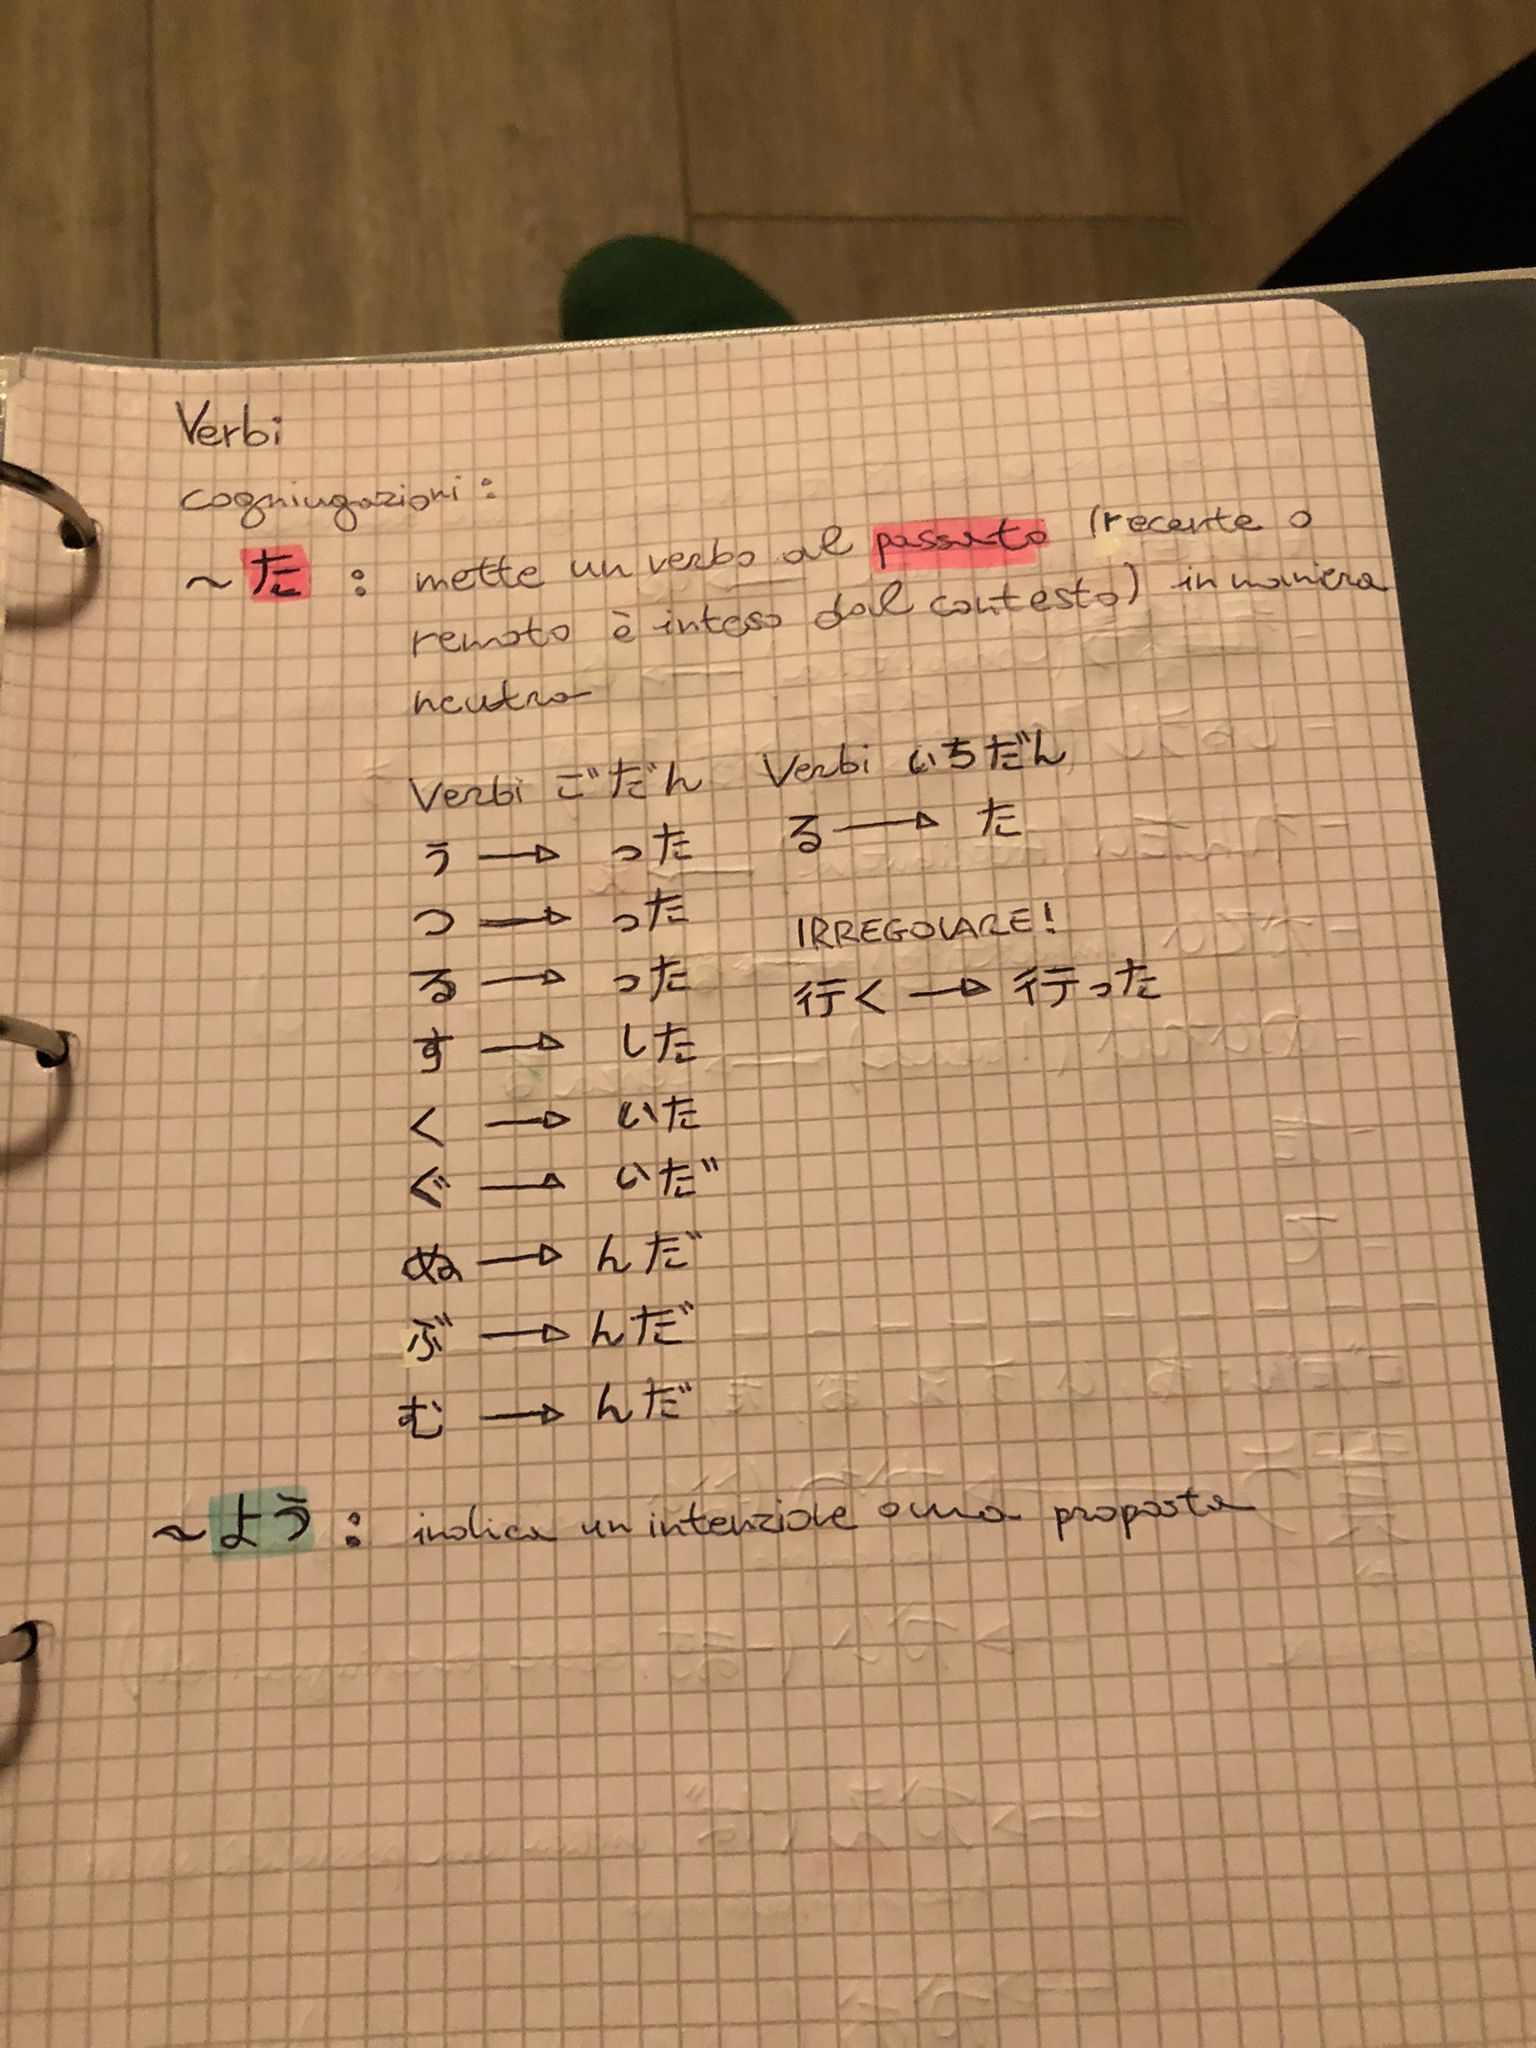 Verbi
cogniugazioni:
~た: mette un verbo al passato (recente o
remoto è inteso dal contesto) in maniera
neutra
Verbi ごだん
う → った
つ → った
る → った
す → した
く → いた
ぐ → いだ
ぬ → んだ
ぶ → んだ
む → んだ
Verbi いちだん
る → た
IRREGOLARE!
行く → 行った
~よう: indica un intenzione o una proposta